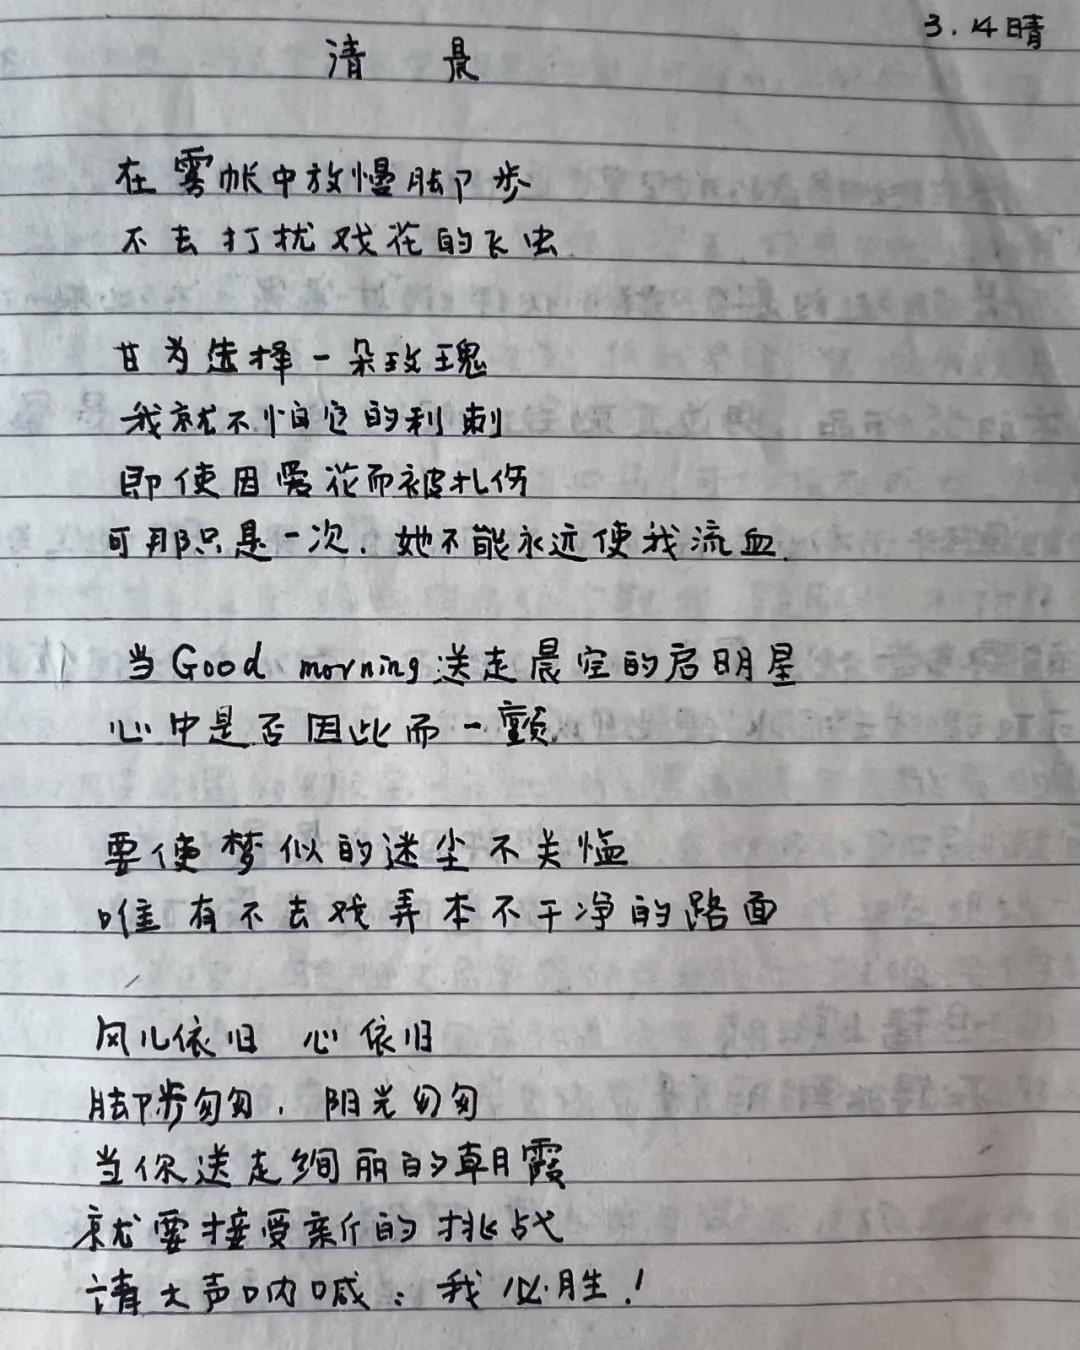 3.14晴
清晨
在雾帐中放慢脚步
不去打扰戏花的飞虫.
甘为选择一朵玫瑰
我就不怕它的利刺
即使因爱花而被扎伤
可那只是一次.她不能永远使我流血.
当Good morning送走晨空的启明星
心中是否因此而一颤
要使梦似的迷尘不关恤
唯有不去戏弄本不干净的路面
风儿依旧 心依旧
脚步匆匆.阳光匆匆
当你送走绚丽的朝霞
就要接受新的挑战
请大声呐喊:我必胜!